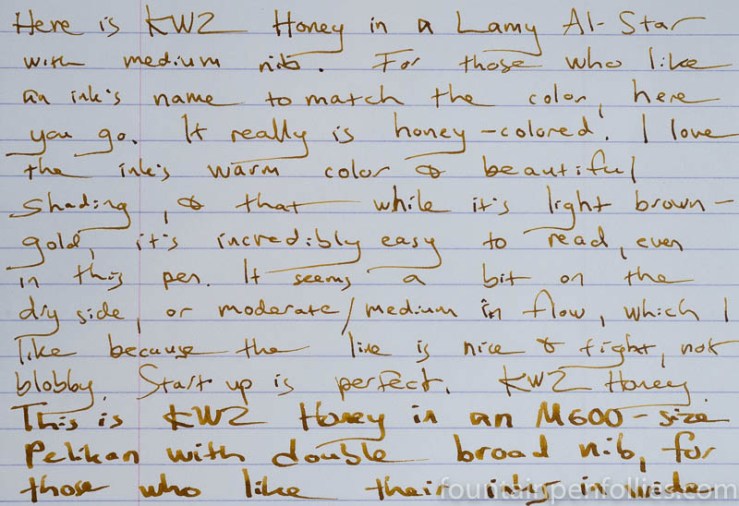 Here is KWZ Honey in a Lamy Al-Star
with medium nib. For those who like
an ink's name to match the color, here
you go. It really is honey-colored! I love
the ink's warm color & beautiful
shading, & that while it's light brown-
gold, it's incredibly easy to read, even
in this pen. It seems a bit on the
dry side, or moderate/medium in flow, which I
like because the line is nice & tight, not
blobby. Start up is perfect. KWZ Honey
This is KWZ Honey in an M600-size
Pelikan with double broad nib, for
those who like their inks in wide
fountainpenfollies.com